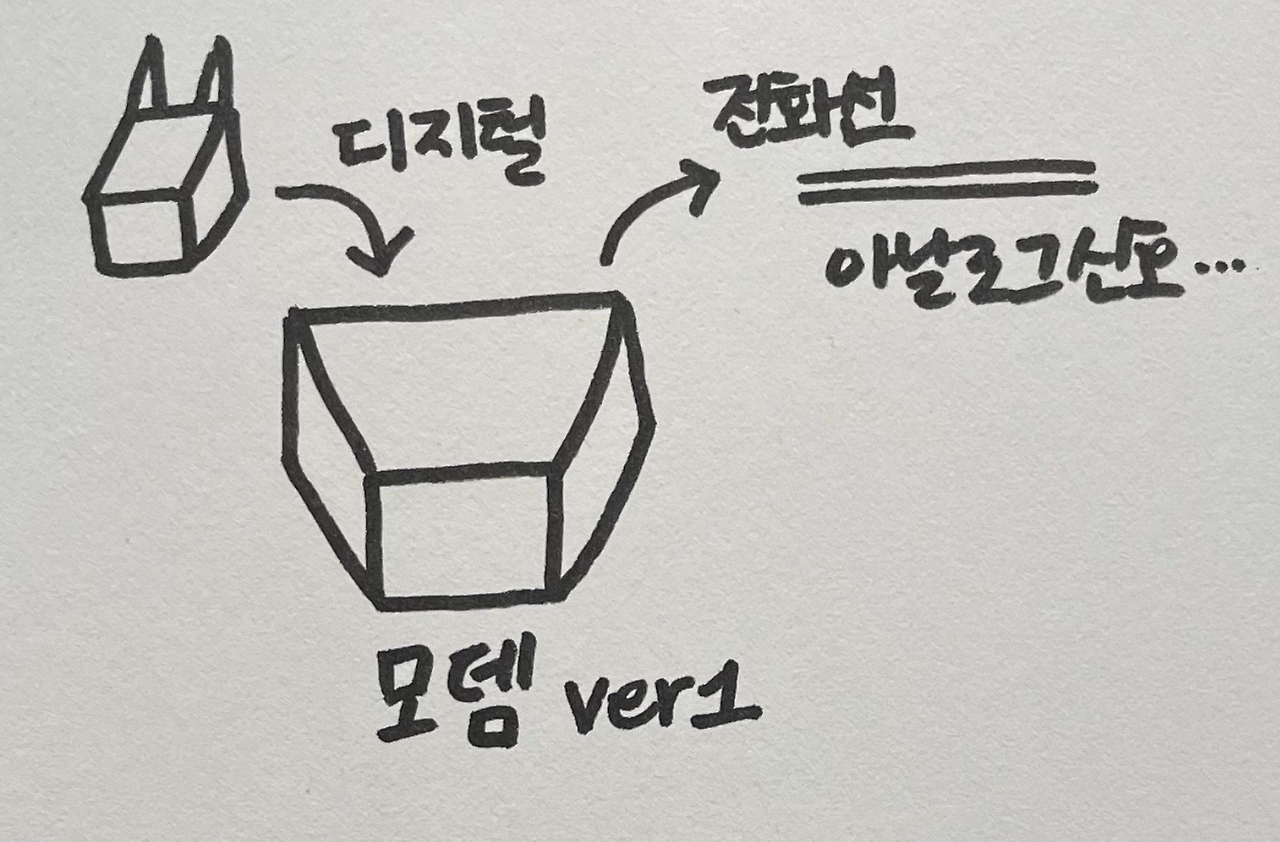 디지털
전화선
아날로그신호...
모뎀 ver1